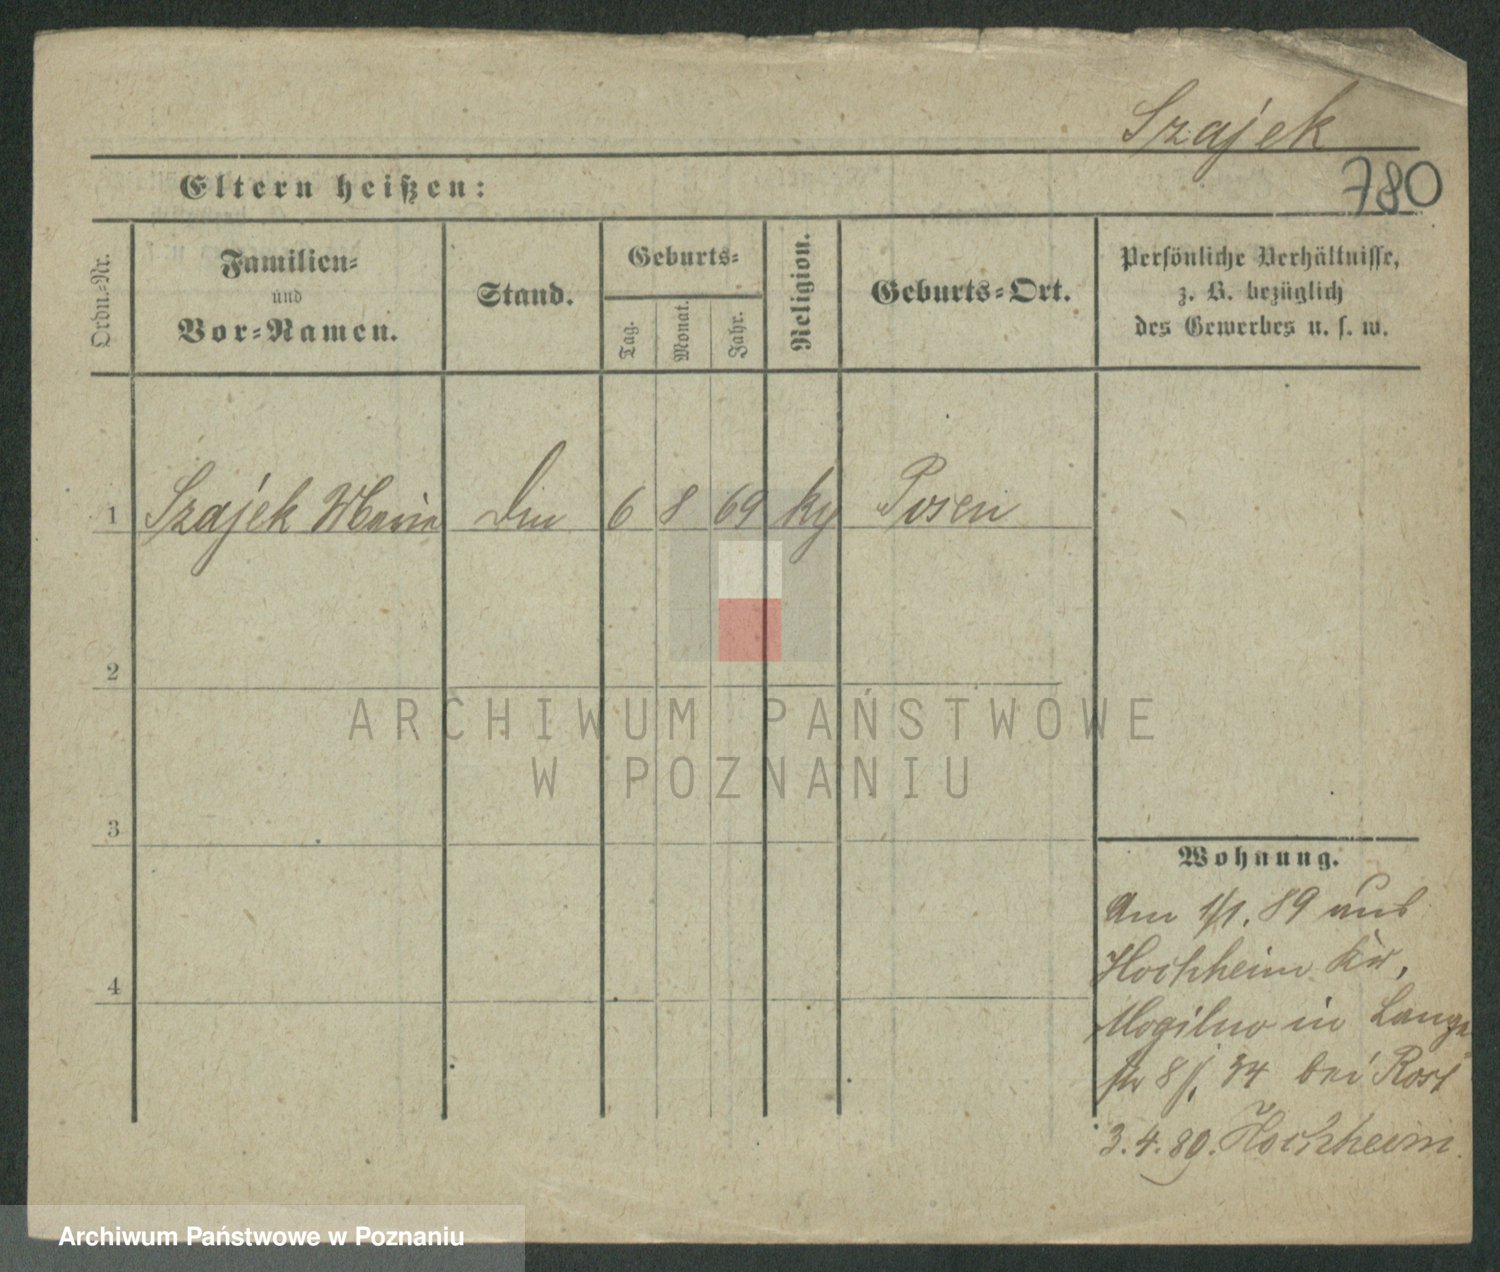 Szajek
780
Eltern heißen:
Ordn.-Nr.
Familien-
und
Vor-Namen.
Stand.
Geburts-
Tag.
Monat.
Jahr.
Religion.
Geburts-Ort.
Persönliche Verhältnisse,
z. B. bezüglich
des Gewerbes u. s. w.
1 Szajek Maria 6 8 69 Posen
2
3
4
Wohnung.
Am 1/1. 89 aus
Hochheim
Mogilno in Lange
str 8 34 bei Rost
3.4.89. Hochheim
ARCHIWUM PAŃSTWOWE
W POZNANIU
Archiwum Państwowe w Poznaniu